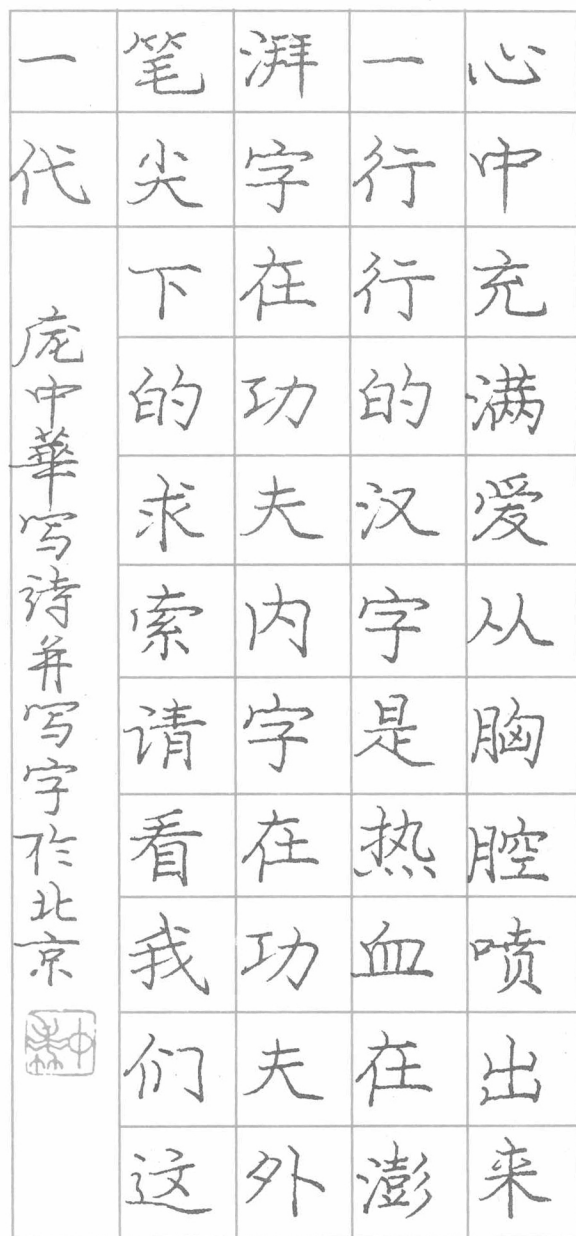 心中充满爱从胸腔喷出来
一行行的汉字是热血在澎
湃字在功夫内字在功夫外
笔尖下的求索请看我们这
一代
庞中華写诗并写字於北京